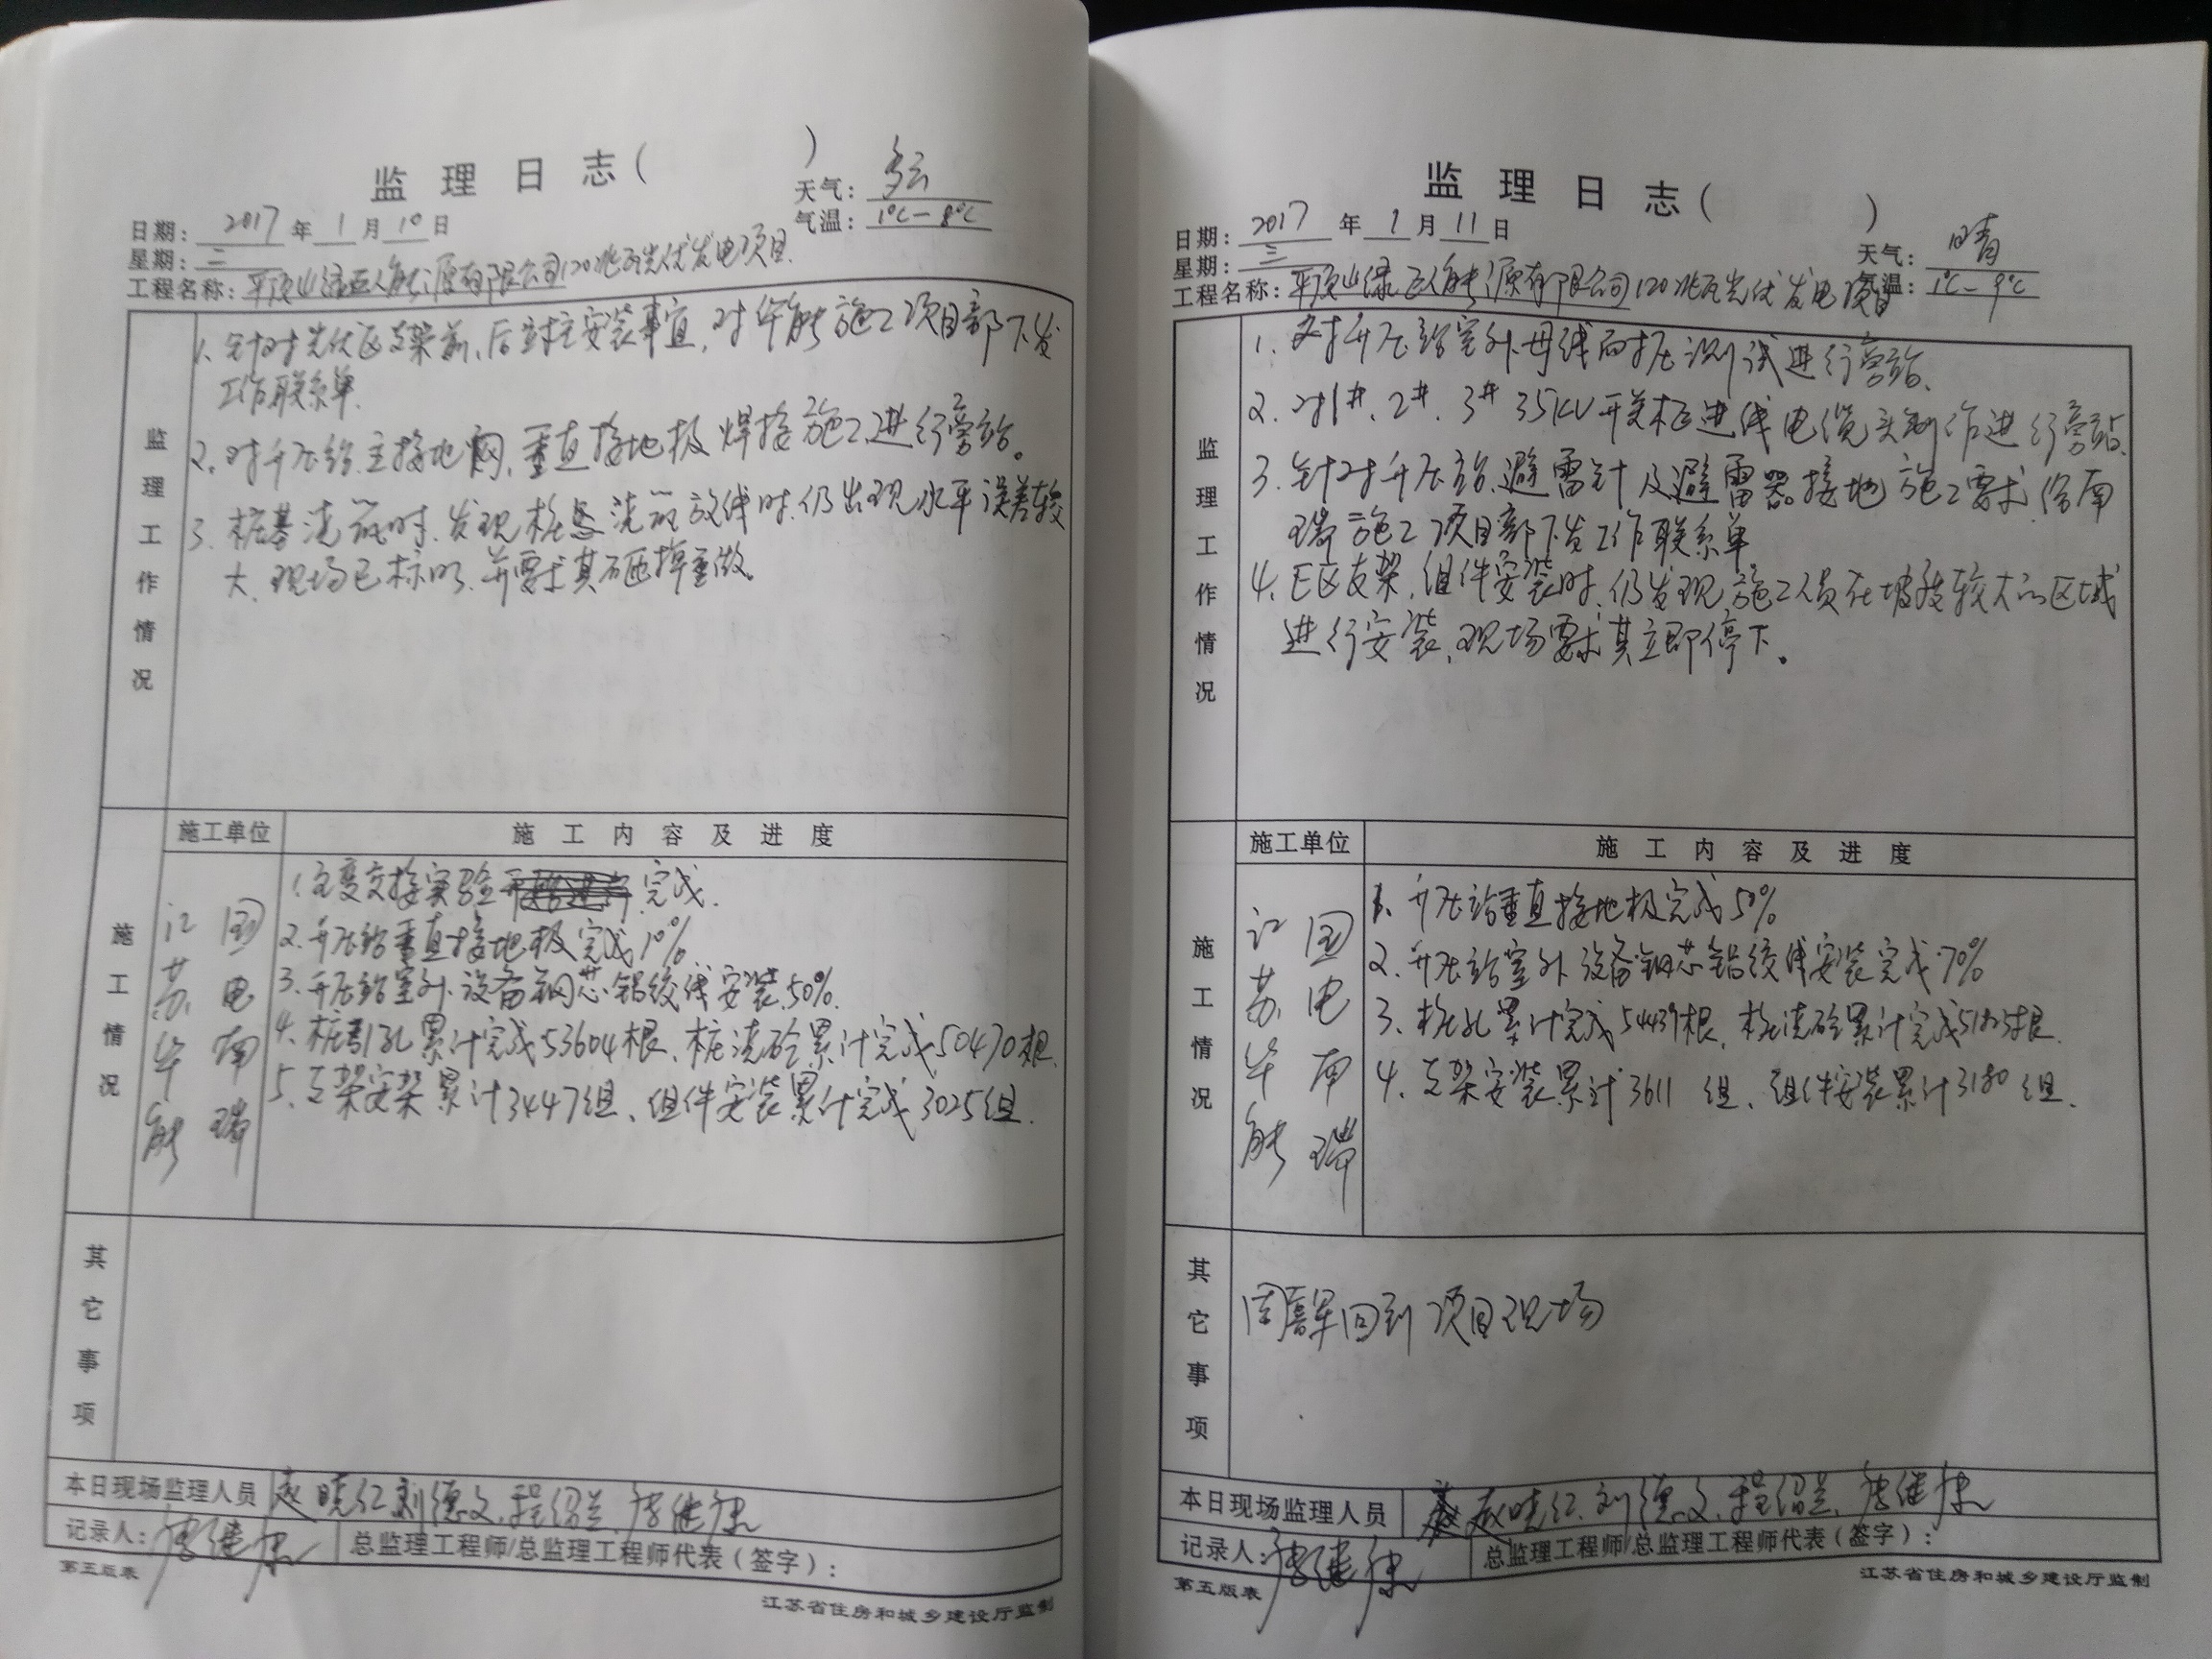 监理日志（ ）
日期：2017年1月10日
天气：多云
星期：二
气温：1℃－8℃
工程名称：平顶山绿巨人能源有限公司120兆瓦光伏发电项目
监理工作情况
1、针对光伏区支架前、后立柱安装事宜，对华能施工项目部下发
工作联系单.
2、对升压站主接地网，垂直接地极焊接施工进行旁站。
3、桩基浇筑时，发现桩基浇筑放线时，仍出现水平误差较
大，现场已标明，并要求其砸掉重做。
施工情况
施工单位
施工内容及进度
江苏华能
国电南瑞
1.主变交接实验 完成.
2.升压站垂直接地极完成10%
3.升压站室外设备钢芯铝绞线安装50%.
4.桩引孔累计完成53604根、桩浇砼累计完成50470根.
5、支架安架累计3447组、组件安装累计完成3025组.
其它事项
本日现场监理人员 赵晓红 刘德文 程绍兰 唐继
记录人：唐继
总监理工程师/总监理工程师代表（签字）：
第五版表
江苏省住房和城乡建设厅监制
监理日志（ ）
日期：2017年1月11日
天气：晴
星期：三
气温：1℃－9℃
工程名称：平顶山绿巨人能源有限公司120兆瓦光伏发电项目
监理工作情况
1、对升压站室外母线耐压测试进行旁站.
2、对1#、2#、3# 35KV开关柜进线电缆头制作进行旁站.
3、针对升压站避雷针及避雷器接地施工要求，给南
瑞施工项目部下发工作联系单
4、E区支架，组件安装时，仍发现施工人员在坡度较大的区域
进行安装，现场要求其立即停下。
施工情况
施工单位
施工内容及进度
江苏华能
国电南瑞
1、升压站垂直接地极完成50%
2、升压站室外设备钢芯铝绞线安装完成70%
3、桩孔累计完成54439根，桩浇砼累计完成根.
4、支架安装累计3611组、组件安装累计3180组.
其它事项
周 军回到项目现场
本日现场监理人员 赵晓红、刘德文、程绍兰、唐继
记录人：唐继
总监理工程师/总监理工程师代表（签字）：
第五版表
江苏省住房和城乡建设厅监制